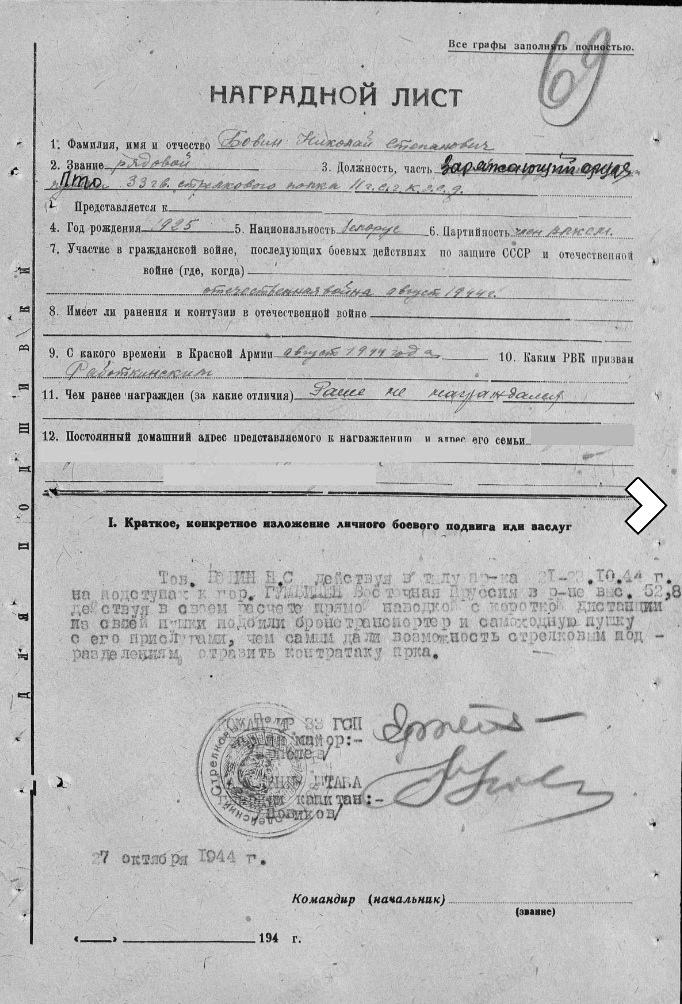 Все графы заполнять полностью.
69
НАГРАДНОЙ ЛИСТ
1. Фамилия, имя и отчество Бовин Николай Степанович
2. Звание рядовой 3. Должность, часть заряжающий орудия
ПТО 33 гв. стрелкового полка 11 г.с.г.к.з.с.д.
Представляется к
4. Год рождения 1925 5. Национальность белорус 6. Партийность член ВЛКСМ.
7. Участие в гражданской войне, последующих боевых действиях по защите СССР и отечественной
войне (где, когда)
отечественная война август 1944 г.
8. Имеет ли ранения и контузии в отечественной войне
9. С какого времени в Красной Армии август 1944 года 10. Каким РВК призван
11. Чем ранее награжден (за какие отличия) Ранее не награждался
12. Постоянный домашний адрес представляемого к награждению и адрес его семьи
I. Краткое, конкретное изложение личного боевого подвига или заслуг
Тов. Н.С действуя в тылу пр-ка 21-23.10.44 г.
на подступах к гор. ГУМБИНЕН Восточная Пруссия в р-не выс. 52,8
действуя в своем расчете прямой наводкой с короткой дистанции
из своей пушки подбили бронетранспортер и самоходную пушку
с его прислугами, чем самым дали возможность стрелковым под -
разделениям, отразить контратаку прка.
КОМАНДИР 33 ГСП
майор:-
ШТАБА
капитан:-
Новиков/
27 октября 1944 г.
Командир (начальник)
(звание)
« » 194 г.
ДЛЯ ПОДШИВКИ